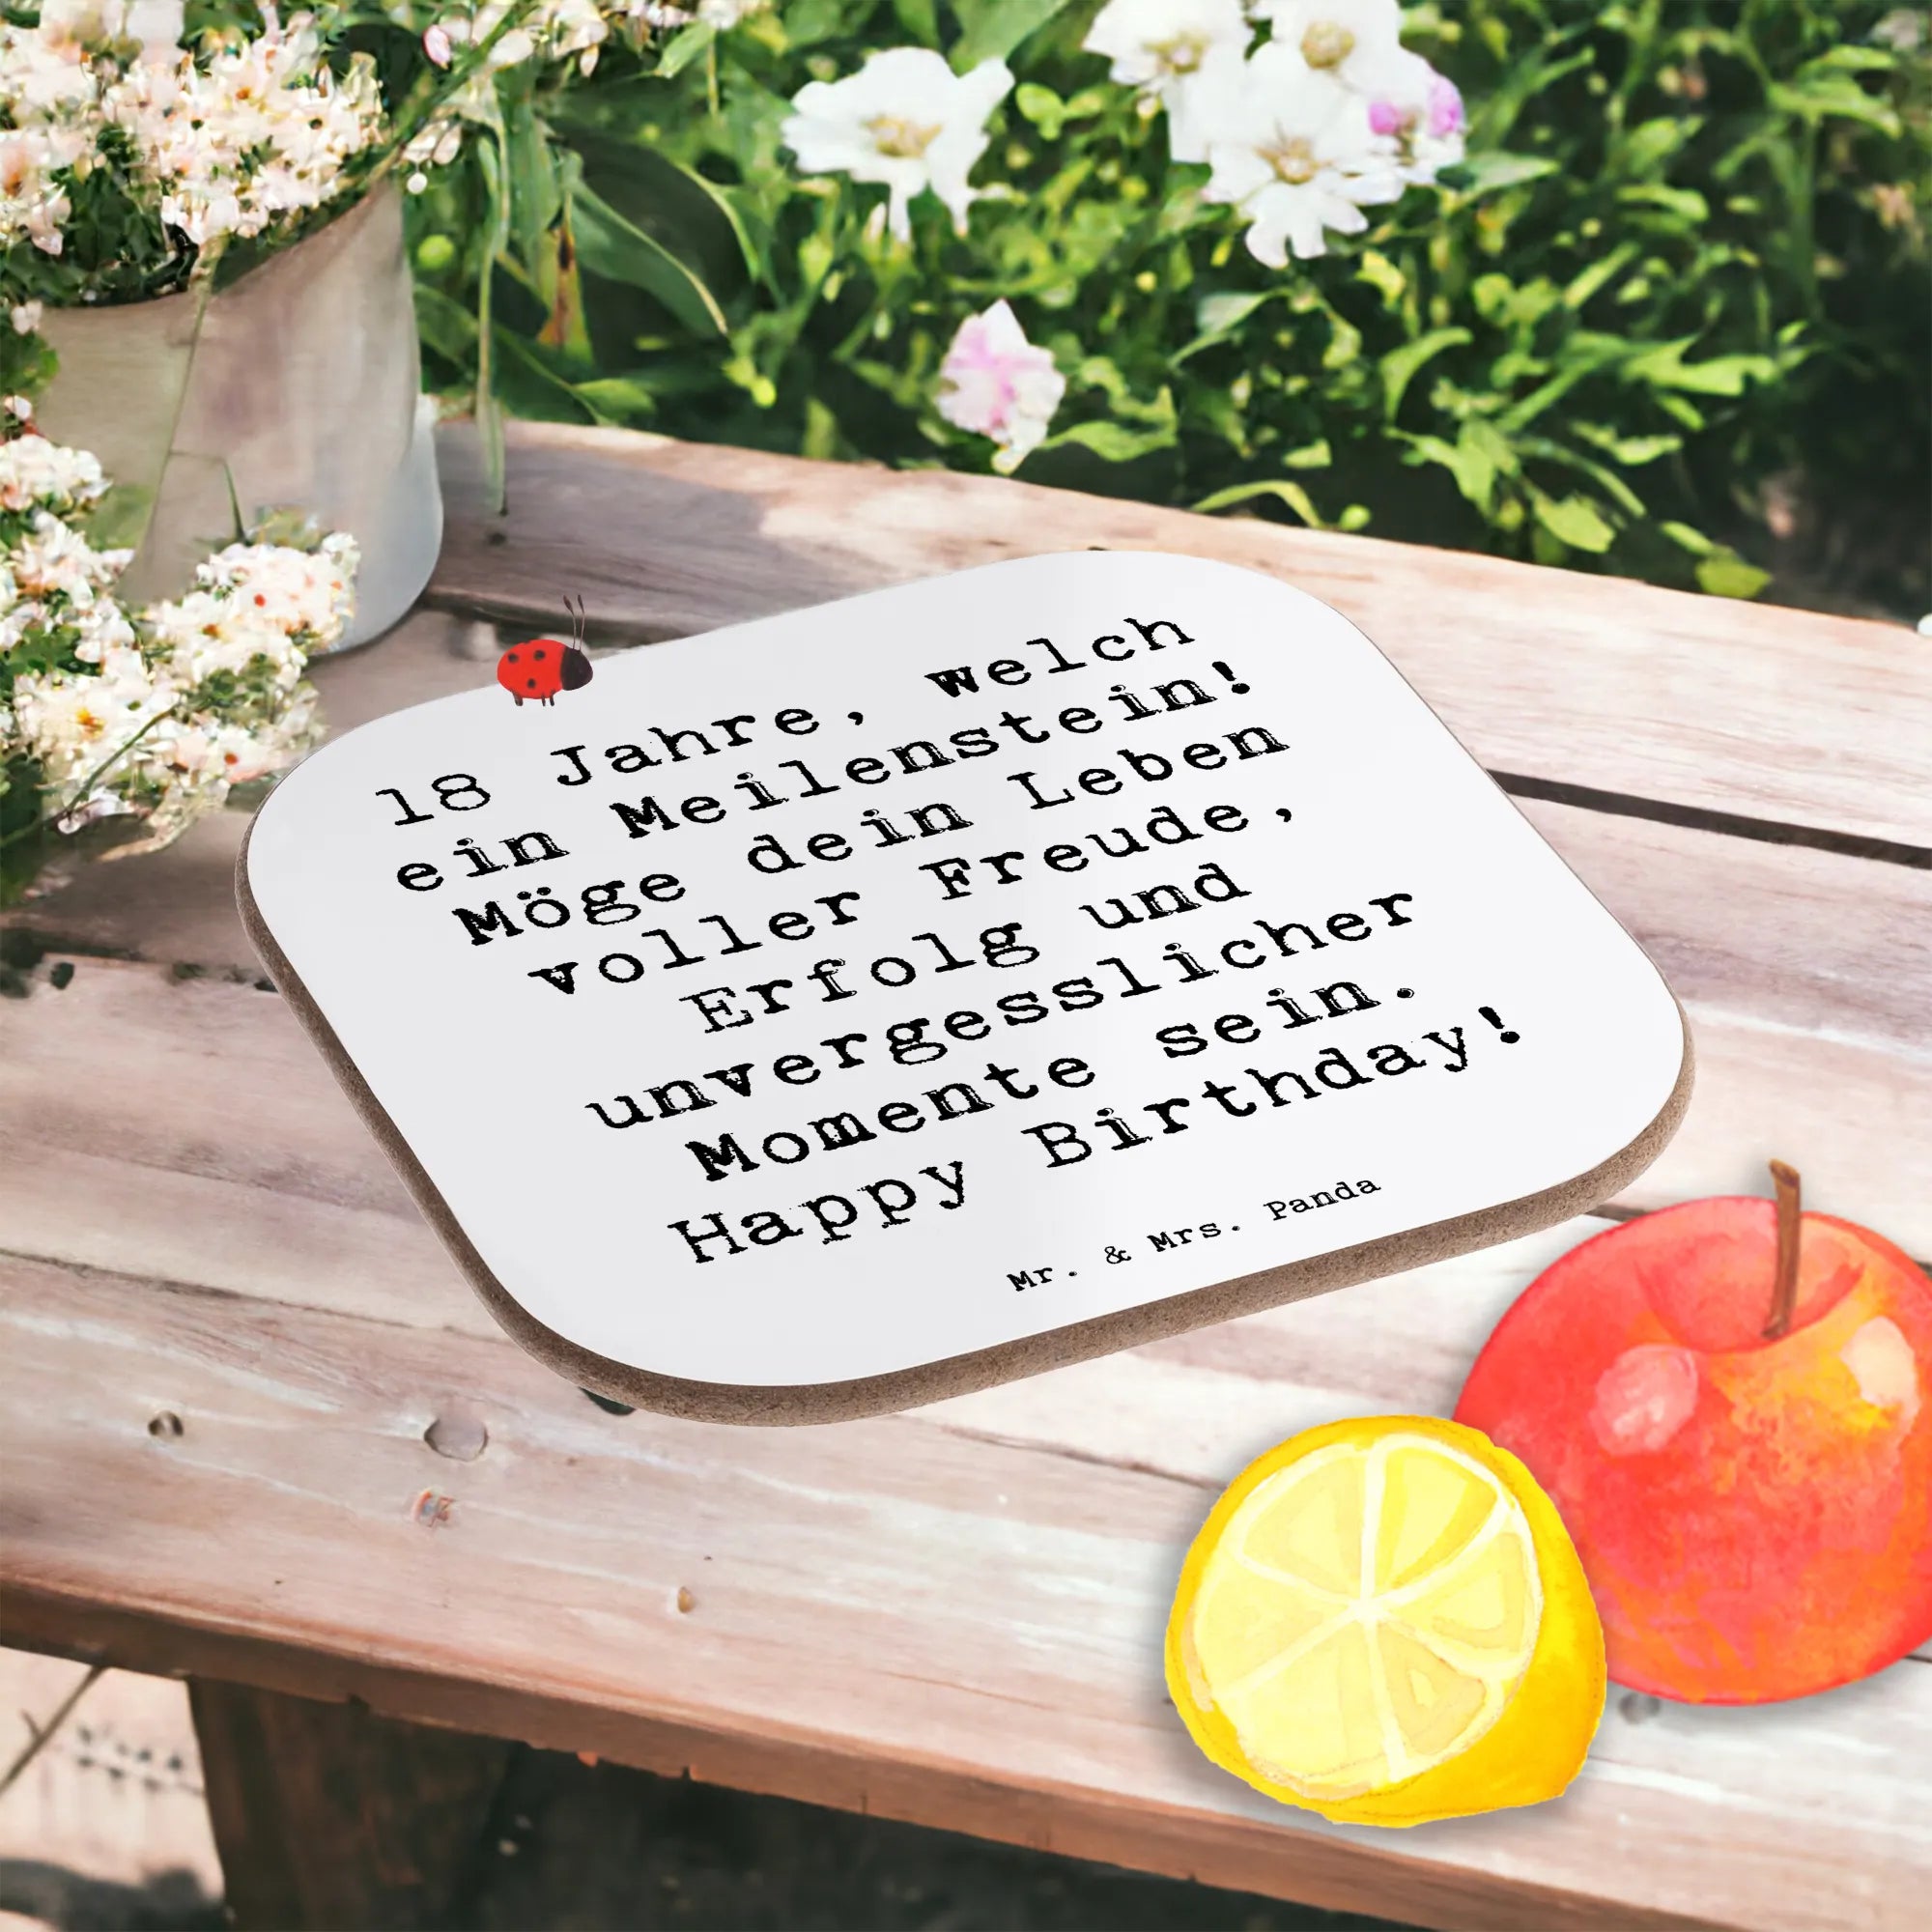 18 Jahre, welch
ein Meilenstein!
Möge dein Leben
voller Freude,
Erfolg und
unvergesslicher
Momente sein.
Happy Birthday!
Mr. & Mrs. Panda